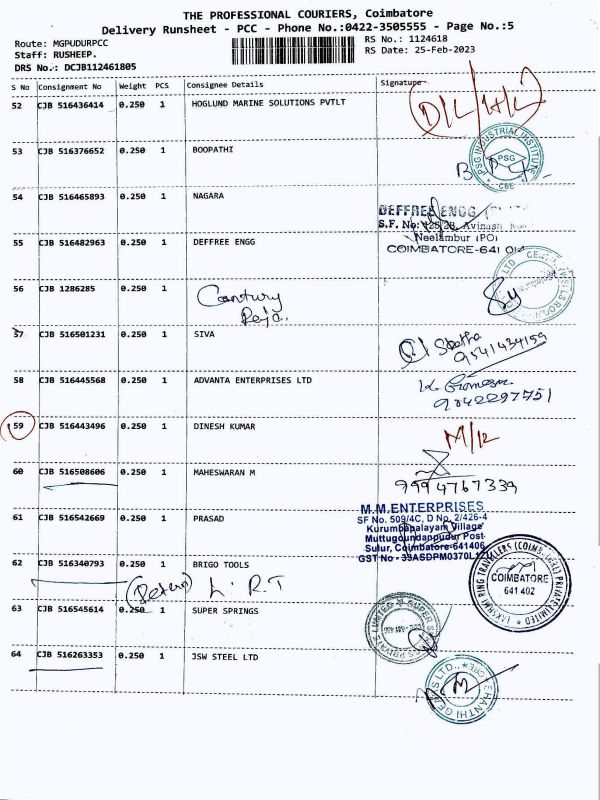 THE PROFESSIONAL COURIERS, Coimbatore
Delivery Runsheet - PCC - Phone No.:0422-3505555 - Page No.:5
Route: MGPUDURPCC
RS No.: 1124618
Staff: RUSHEEP.
RS Date: 25-Feb-2023
DRS No.: DCJB112461805
S No Consignment No Weight PCS Consignee Details Signature
52 CJB 516436414 0.250 1 HOGLUND MARINE SOLUTIONS PVTLT
D/L/H/L
53 CJB 516376652 0.250 1 BOOPATHI
PSG INDUSTRIAL INSTITUTE
PSG
CBE
54 CJB 516465893 0.250 1 NAGARA
DEFFREE ENGG
S.F. No: Avinash
55 CJB 516482963 0.250 1 DEFFREE ENGG
Neelambur (PO)
COIMBATORE-641
56 CJB 1286285 0.250 1 Century
Raja.
57 CJB 516501231 0.250 1 SIVA
9541434159
58 CJB 516445568 0.250 1 ADVANTA ENTERPRISES LTD
9042297751
59 CJB 516443496 0.250 1 DINESH KUMAR
M/12
60 CJB 516508606 0.250 1 MAHESWARAN M
9994767339
61 CJB 516542669 0.250 1 PRASAD
M.M.ENTERPRISES
SF No. 509/4C, D No. 2/426-4
Kurumbapalayam Village
Muttugoundanpudur Post
Sulur, Coimbatore-641406
GST No - 33ASDPM0370L1Z
62 CJB 516340793 0.250 1 BRIGO TOOLS
(Return) L. R.T
LAKSHMI RING TRAVELLERS (COIMBATORE) PRIVATE LIMITED
COIMBATORE
641 402
63 CJB 516545614 0.250 1 SUPER SPRINGS
SUPER SPRINGS PRIVATE LIMITED
64 CJB 516263353 0.250 1 JSW STEEL LTD
SHANTHI GEARS LTD.,